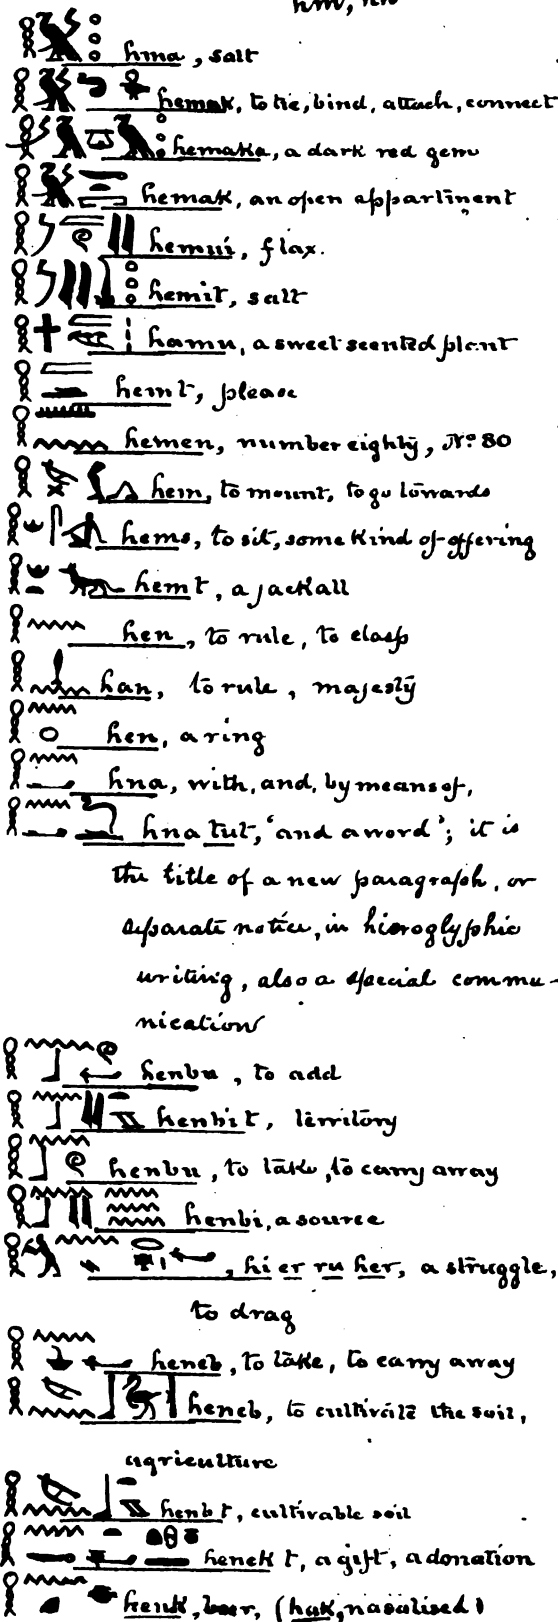 hma, salt
hemak, to tie, bind, attach, connect
hemaka, a dark red gem
hemak, an open appartinent
hemui, flax.
hemit, salt
hamu, a sweet scented plant
hemt, please
hemen, number eighty, No. 80
hem, to mount, to go towards
hems, to sit, some kind of offering
hemt, a jackall
hen, to rule, to clasp
han, to rule, majesty
hen, a ring
hna, with, and, by means of,
hna tut, 'and a word'; it is
the title of a new paragraph, or
separate notice, in hieroglyphic
writing, also a special commu-
nication
henbu, to add
henbit, territory
henbu, to take, to carry away
henbi, a source
hi er ru her, a struggle,
to drag
heneb, to take, to carry away
heneb, to cultivate the soil,
agriculture
henbt, cultivable soil
henekt, a gift, a donation
henk, beer, (hak, nasalised)